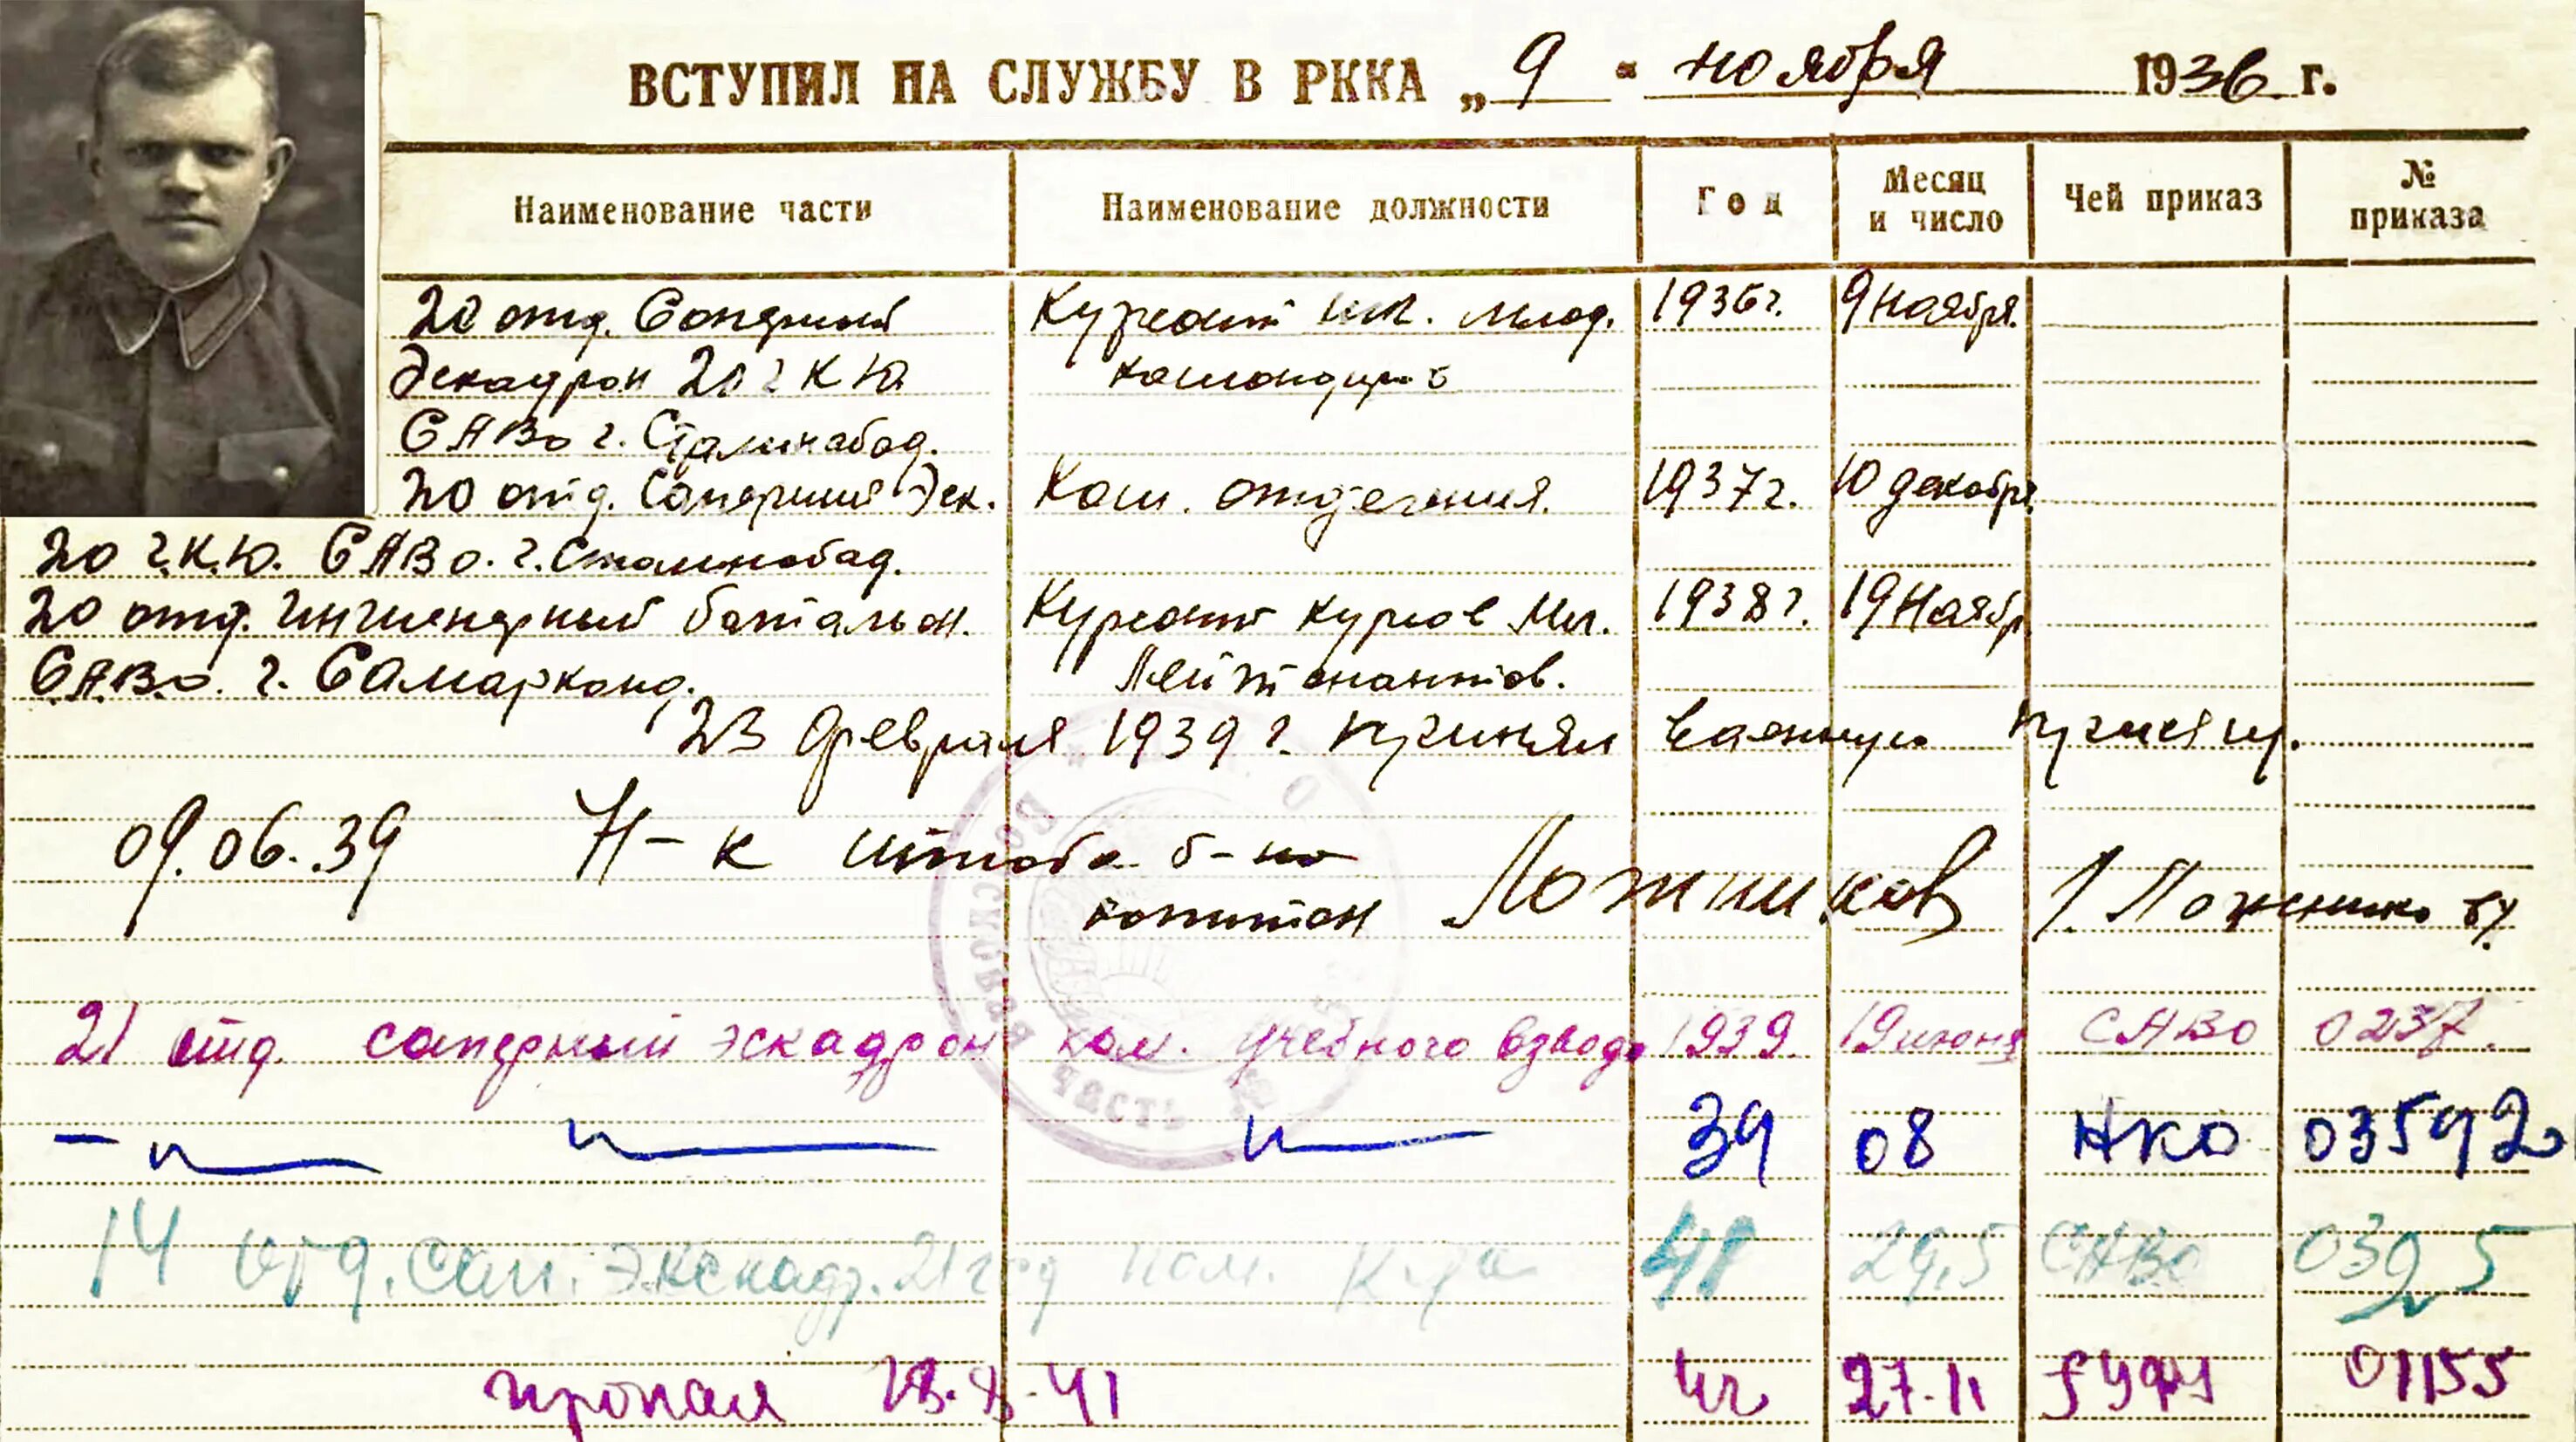 ВСТУПИЛ НА СЛУЖБУ В РККА „9" ноября 1936 г.
Наименование части Наименование должности Год Месяц и число Чей приказ № приказа
20 отд. Саперный Курсант шк. млад. 1936г. 9 Ноября.
Эскадрон 20 г К Ю командиров
САВо г. Сталинабад.
20 отд. Саперный Эск. Ком. отделения. 1937г. 10 декабря
20 г.К.Ю. САВо. г. Сталинобад.
20 отд. Инженерный батальон. Курсант Курсов Мл. 1938г. 19 Ноябр
САВо. г. Самарканд. Лейтенантов.
23 февраля 1939 г. принял военную присягу.
09.06.39 Н-к штаба б-на
капитан Ложников
21 отд. саперный эскадрон ком. учебного взвода 1939. 19 июня САВО 0237.
–"– –"– –"– 39 08 НКО 03592
14 отд. сап. экскадр. 21 гкд пом. 41 29.5 САВО 0395
пропал 41 27.11 01155